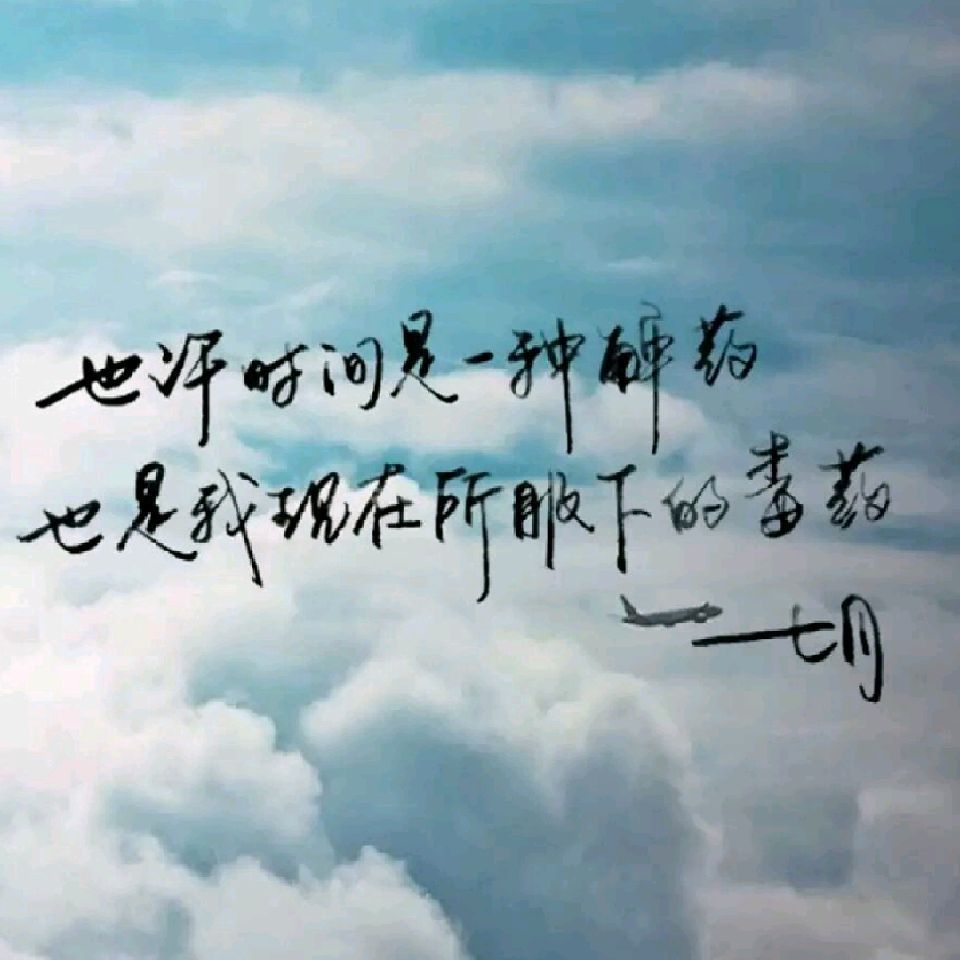 也许时间是一种解药
也是我现在所服下的毒药
——七月